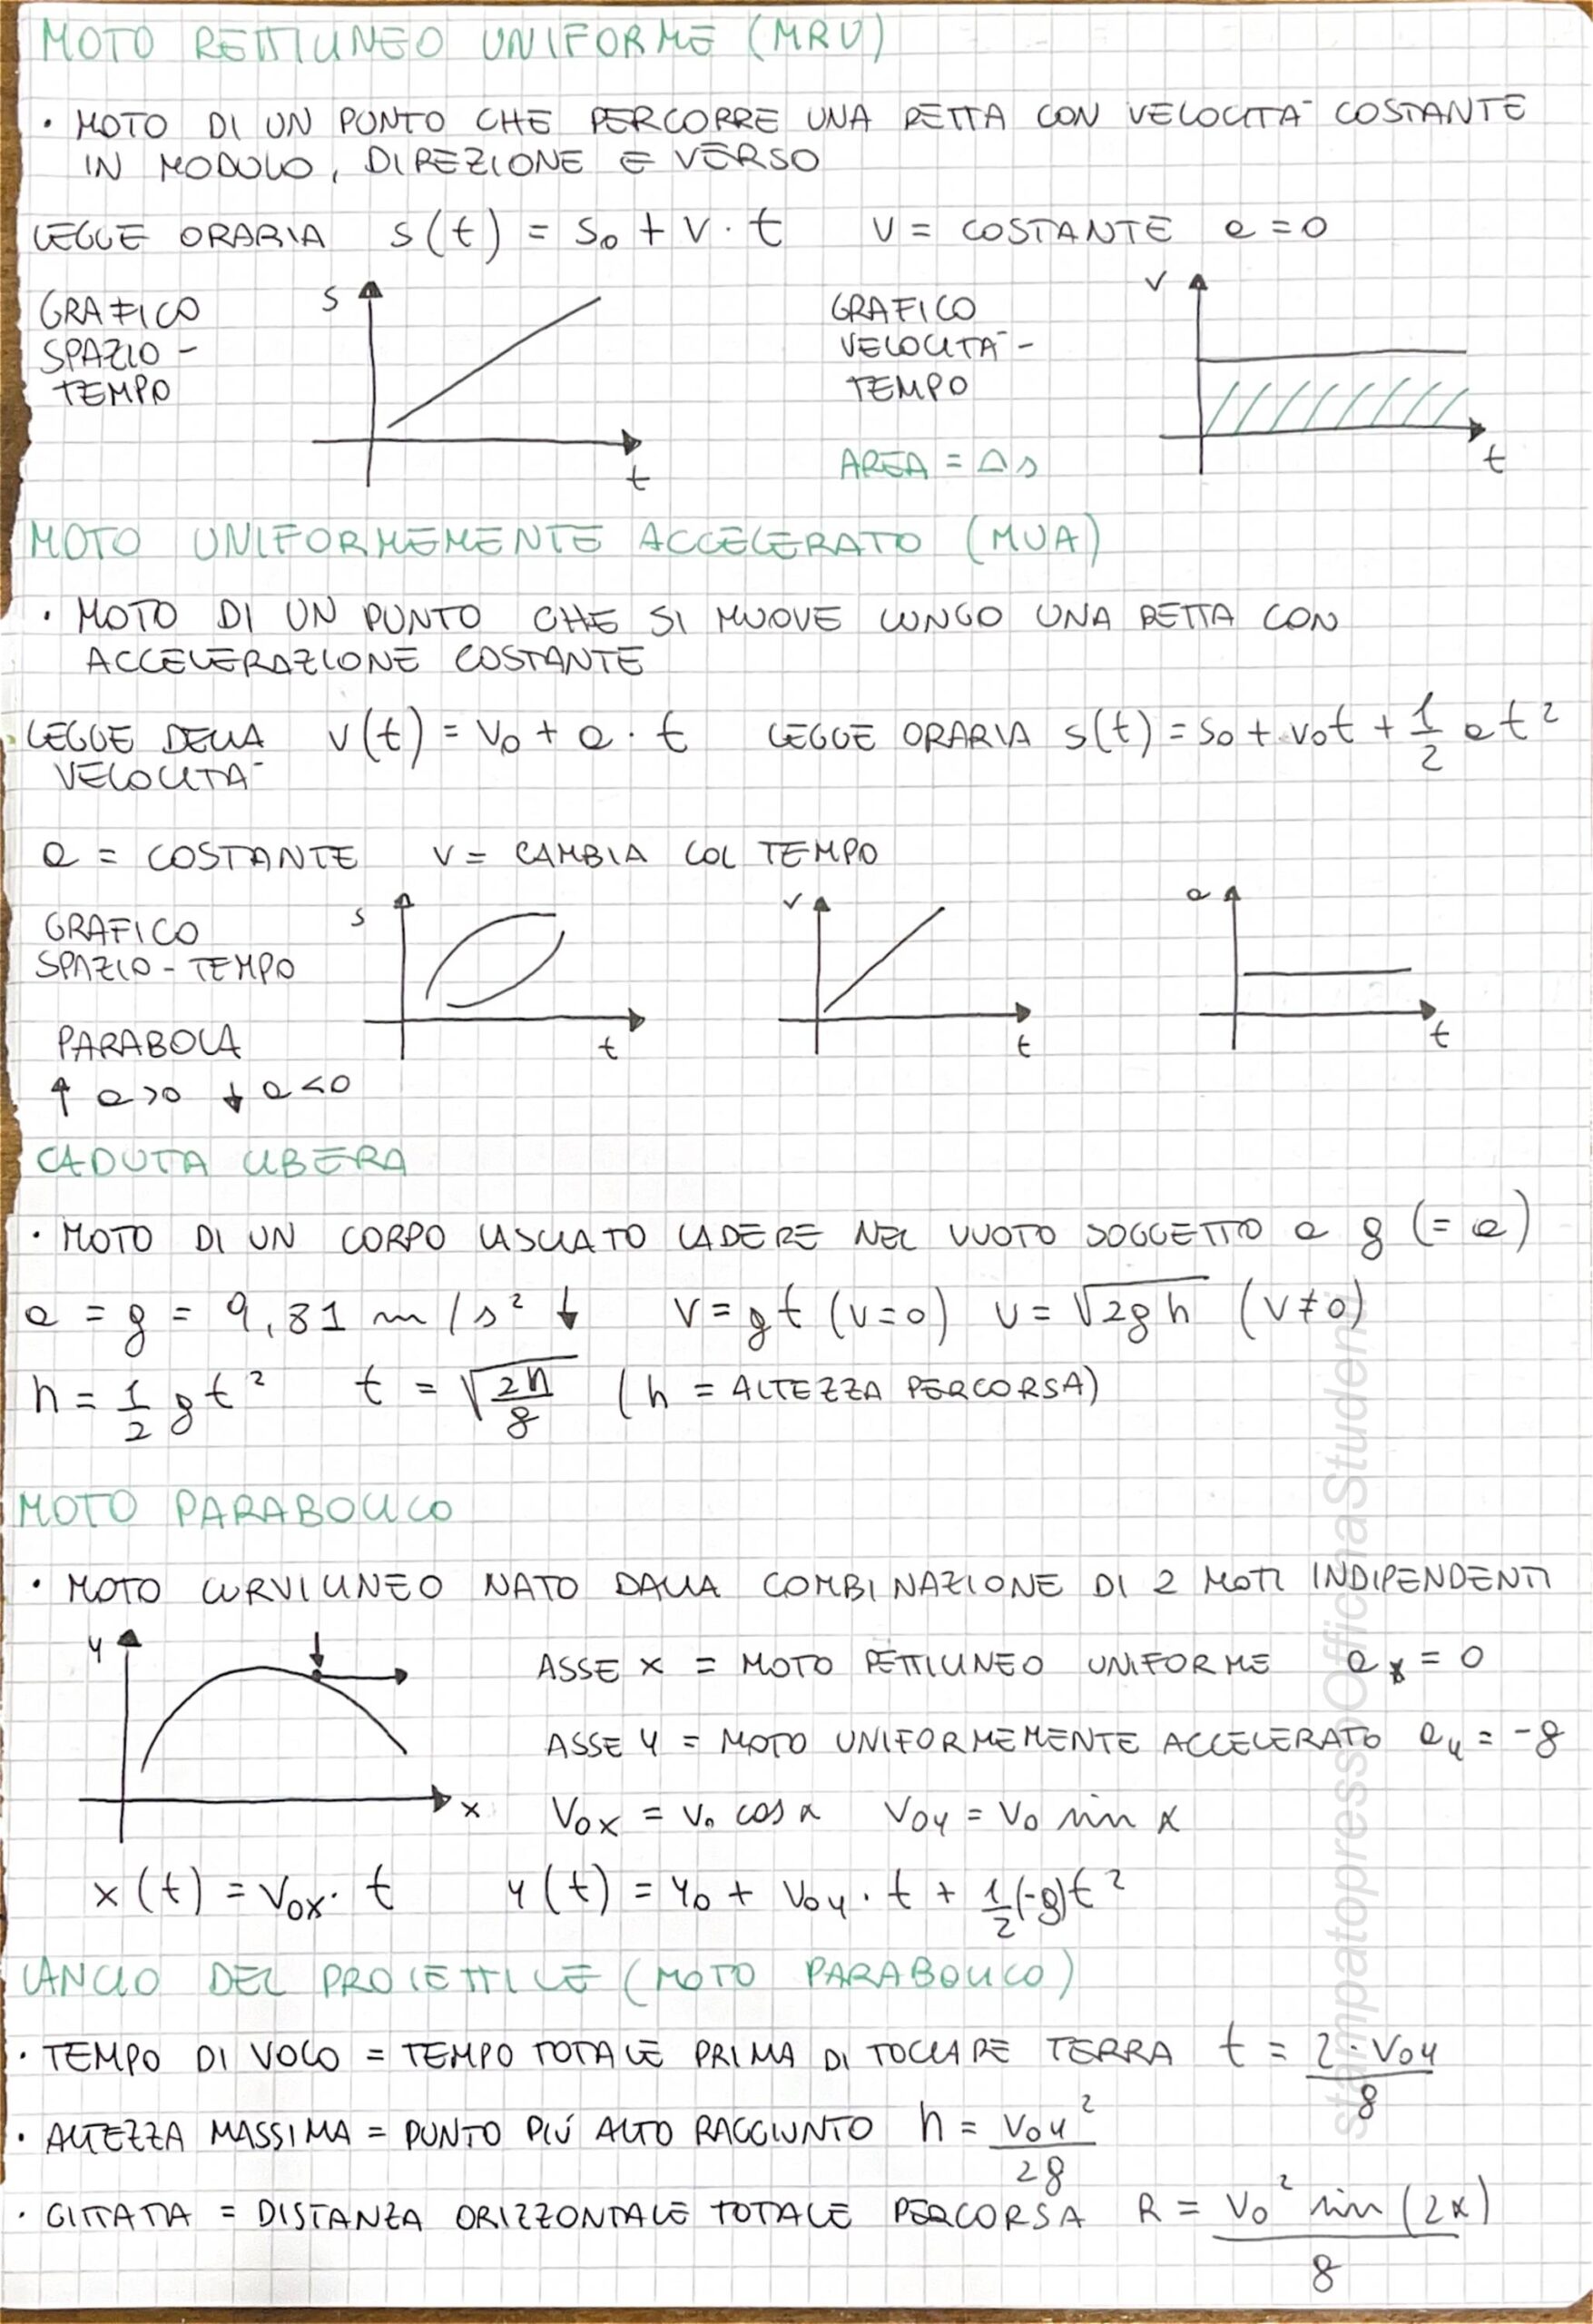 MOTO RETTILINEO UNIFORME (MRU)
· MOTO DI UN PUNTO CHE PERCORRE UNA RETTA CON VELOCITA' COSTANTE
IN MODULO, DIREZIONE E VERSO
LEGGE ORARIA s(t) = s₀ + v · t v = COSTANTE a = 0
GRAFICO
SPAZIO -
TEMPO
s
t
GRAFICO
VELOCITA' -
TEMPO
AREA = Δs
v
t
MOTO UNIFORMEMENTE ACCELERATO (MUA)
· MOTO DI UN PUNTO CHE SI MUOVE LUNGO UNA RETTA CON
ACCELERAZIONE COSTANTE
LEGGE DELLA v(t) = v₀ + a · t LEGGE ORARIA s(t) = s₀ + v₀t + 1/2 at²
VELOCITA'
a = COSTANTE v = CAMBIA COL TEMPO
GRAFICO
SPAZIO - TEMPO
PARABOLA
↑ a>0 ↓ a<0
s
t
v
t
a
t
CADUTA LIBERA
· MOTO DI UN CORPO LASCIATO CADERE NEL VUOTO SOGGETTO a g (= a)
a = g = 9,81 m/s² ↓ v = gt (v=0) v = √2gh (v≠0)
h = 1/2 gt² t = √2h/g (h = ALTEZZA PERCORSA)
MOTO PARABOLICO
· MOTO CURVILINEO NATO DALLA COMBINAZIONE DI 2 MOTI INDIPENDENTI
y
x
ASSE x = MOTO RETTILINEO UNIFORME aₓ = 0
ASSE y = MOTO UNIFORMEMENTE ACCELERATO a_y = -g
v₀ₓ = v₀ cos α v₀y = v₀ sin α
x(t) = v₀ₓ · t y(t) = y₀ + v₀y · t + 1/2(-g)t²
LANCIO DEL PROIETTILE (MOTO PARABOLICO)
· TEMPO DI VOLO = TEMPO TOTALE PRIMA DI TOCCARE TERRA t = 2 · v₀y / g
· ALTEZZA MASSIMA = PUNTO PIÚ ALTO RAGGIUNTO h = v₀y² / 2g
· GITTATA = DISTANZA ORIZZONTALE TOTALE PERCORSA R = v₀² sin (2α) / g
stampatopressoOfficinaStudenti